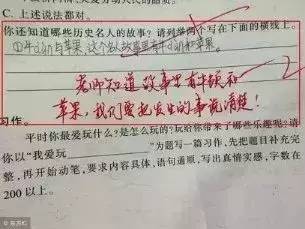 C. 上述说法都对。
你还知道哪些历史名人的故事？请列举两个写在下面的横线上。
①牛顿与苹果 这个故事里有牛顿和苹果。
老师知道故事里有牛顿和
苹果，我们要把发生的事说清楚！
习作。
平时你最爱玩什么？是怎么玩的？玩给你带来了哪些乐趣呢？请
你以“我爱玩
”为题写一篇习作，先把题目补充完
整，再开始动笔，要求内容具体，语句通顺，写出真情实感，字数在
200以上。